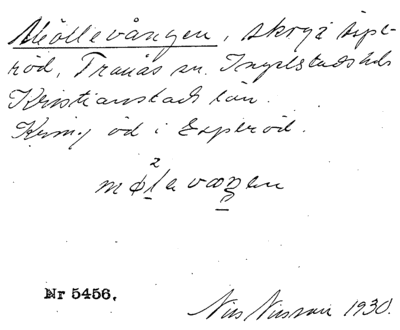 Möllevången, skog i Espe-
röd, Tranås sn. Ingelstads hd.
Kristianstads län.
öd i Esperöd.
2
Nr 5456.
Nils Nilsson 1930.